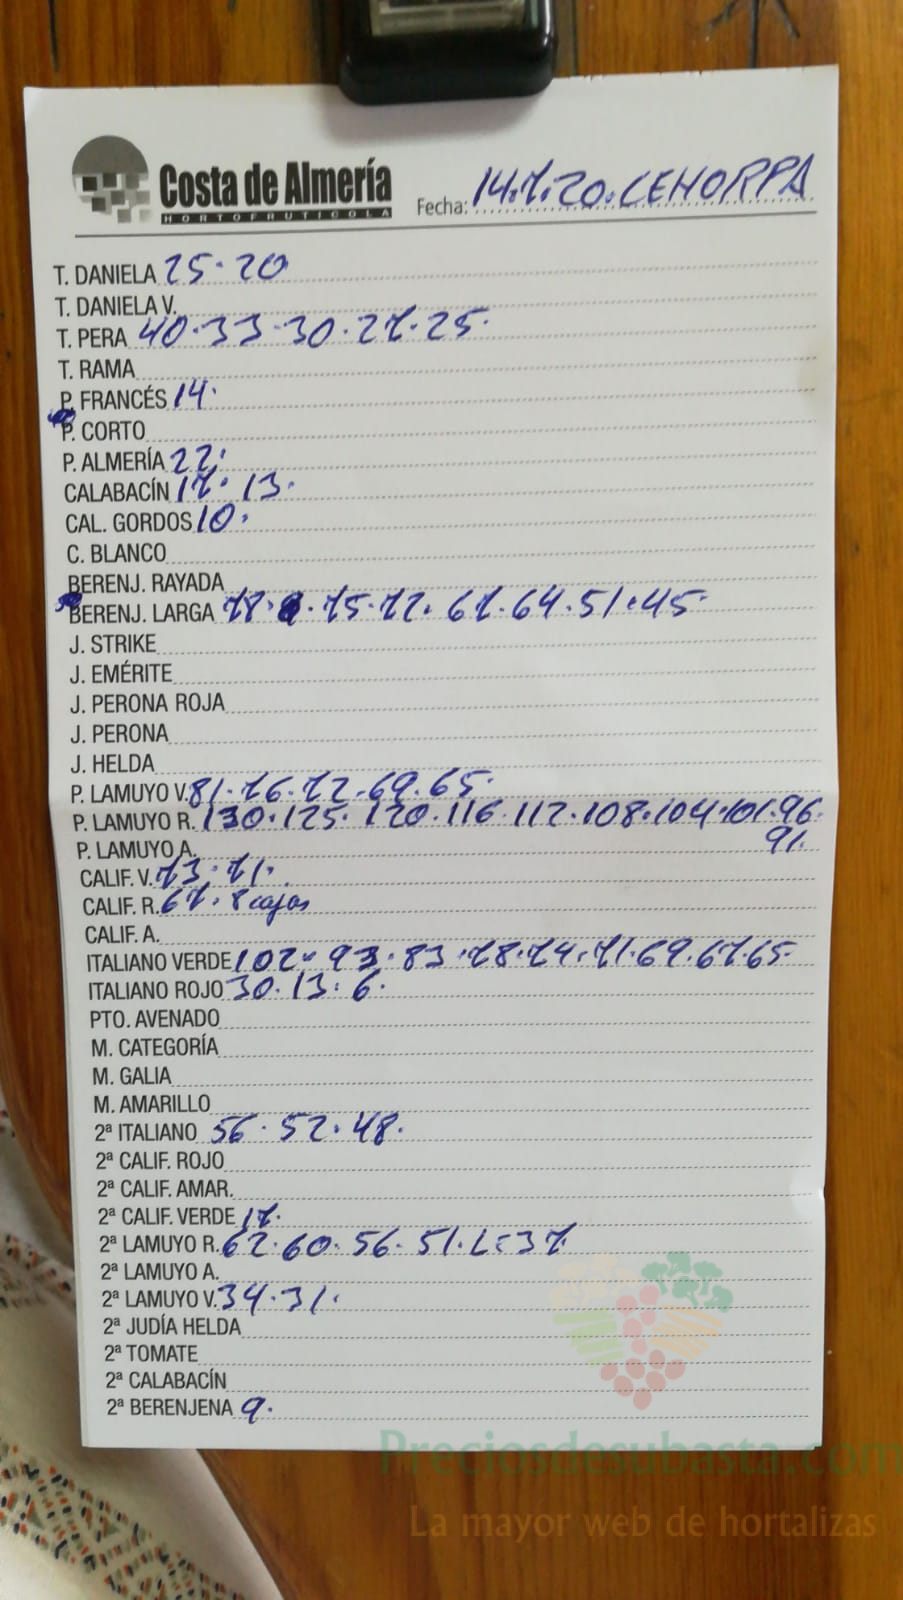 Costa de Almería
HORTOFRUTICOLA
Fecha: 14.1.20. CEHORPA
T. DANIELA 25.20
T. DANIELA V.
T. PERA 40.33.30.27.25.
T. RAMA
P. FRANCÉS 14.
P. CORTO
P. ALMERÍA 22.
CALABACÍN 17. 13.
CAL. GORDOS 10.
C. BLANCO
BERENJ. RAYADA
BERENJ. LARGA 78. 75.72. 67.64.51.45.
J. STRIKE
J. EMÉRITE
J. PERONA ROJA
J. PERONA
J. HELDA
P. LAMUYO V. 81.76.72.69.65.
P. LAMUYO R. 130.125.120.116.112.108.104.101.96.
91.
P. LAMUYO A.
CALIF. V. 73.71.
CALIF. R. 67. 8 cajas
CALIF. A.
ITALIANO VERDE 102.93.83.78.74.71.69.67.65.
ITALIANO ROJO 30.13.6.
PTO. AVENADO
M. CATEGORÍA
M. GALIA
M. AMARILLO
2ª ITALIANO 56.52.48.
2ª CALIF. ROJO
2ª CALIF. AMAR.
2ª CALIF. VERDE 17.
2ª LAMUYO R. 62.60.56.51.L=37
2ª LAMUYO A.
2ª LAMUYO V. 34.31.
2ª JUDÍA HELDA
2ª TOMATE
2ª CALABACÍN
2ª BERENJENA 9.
Preciosdesubasta.com
La mayor web de hortalizas